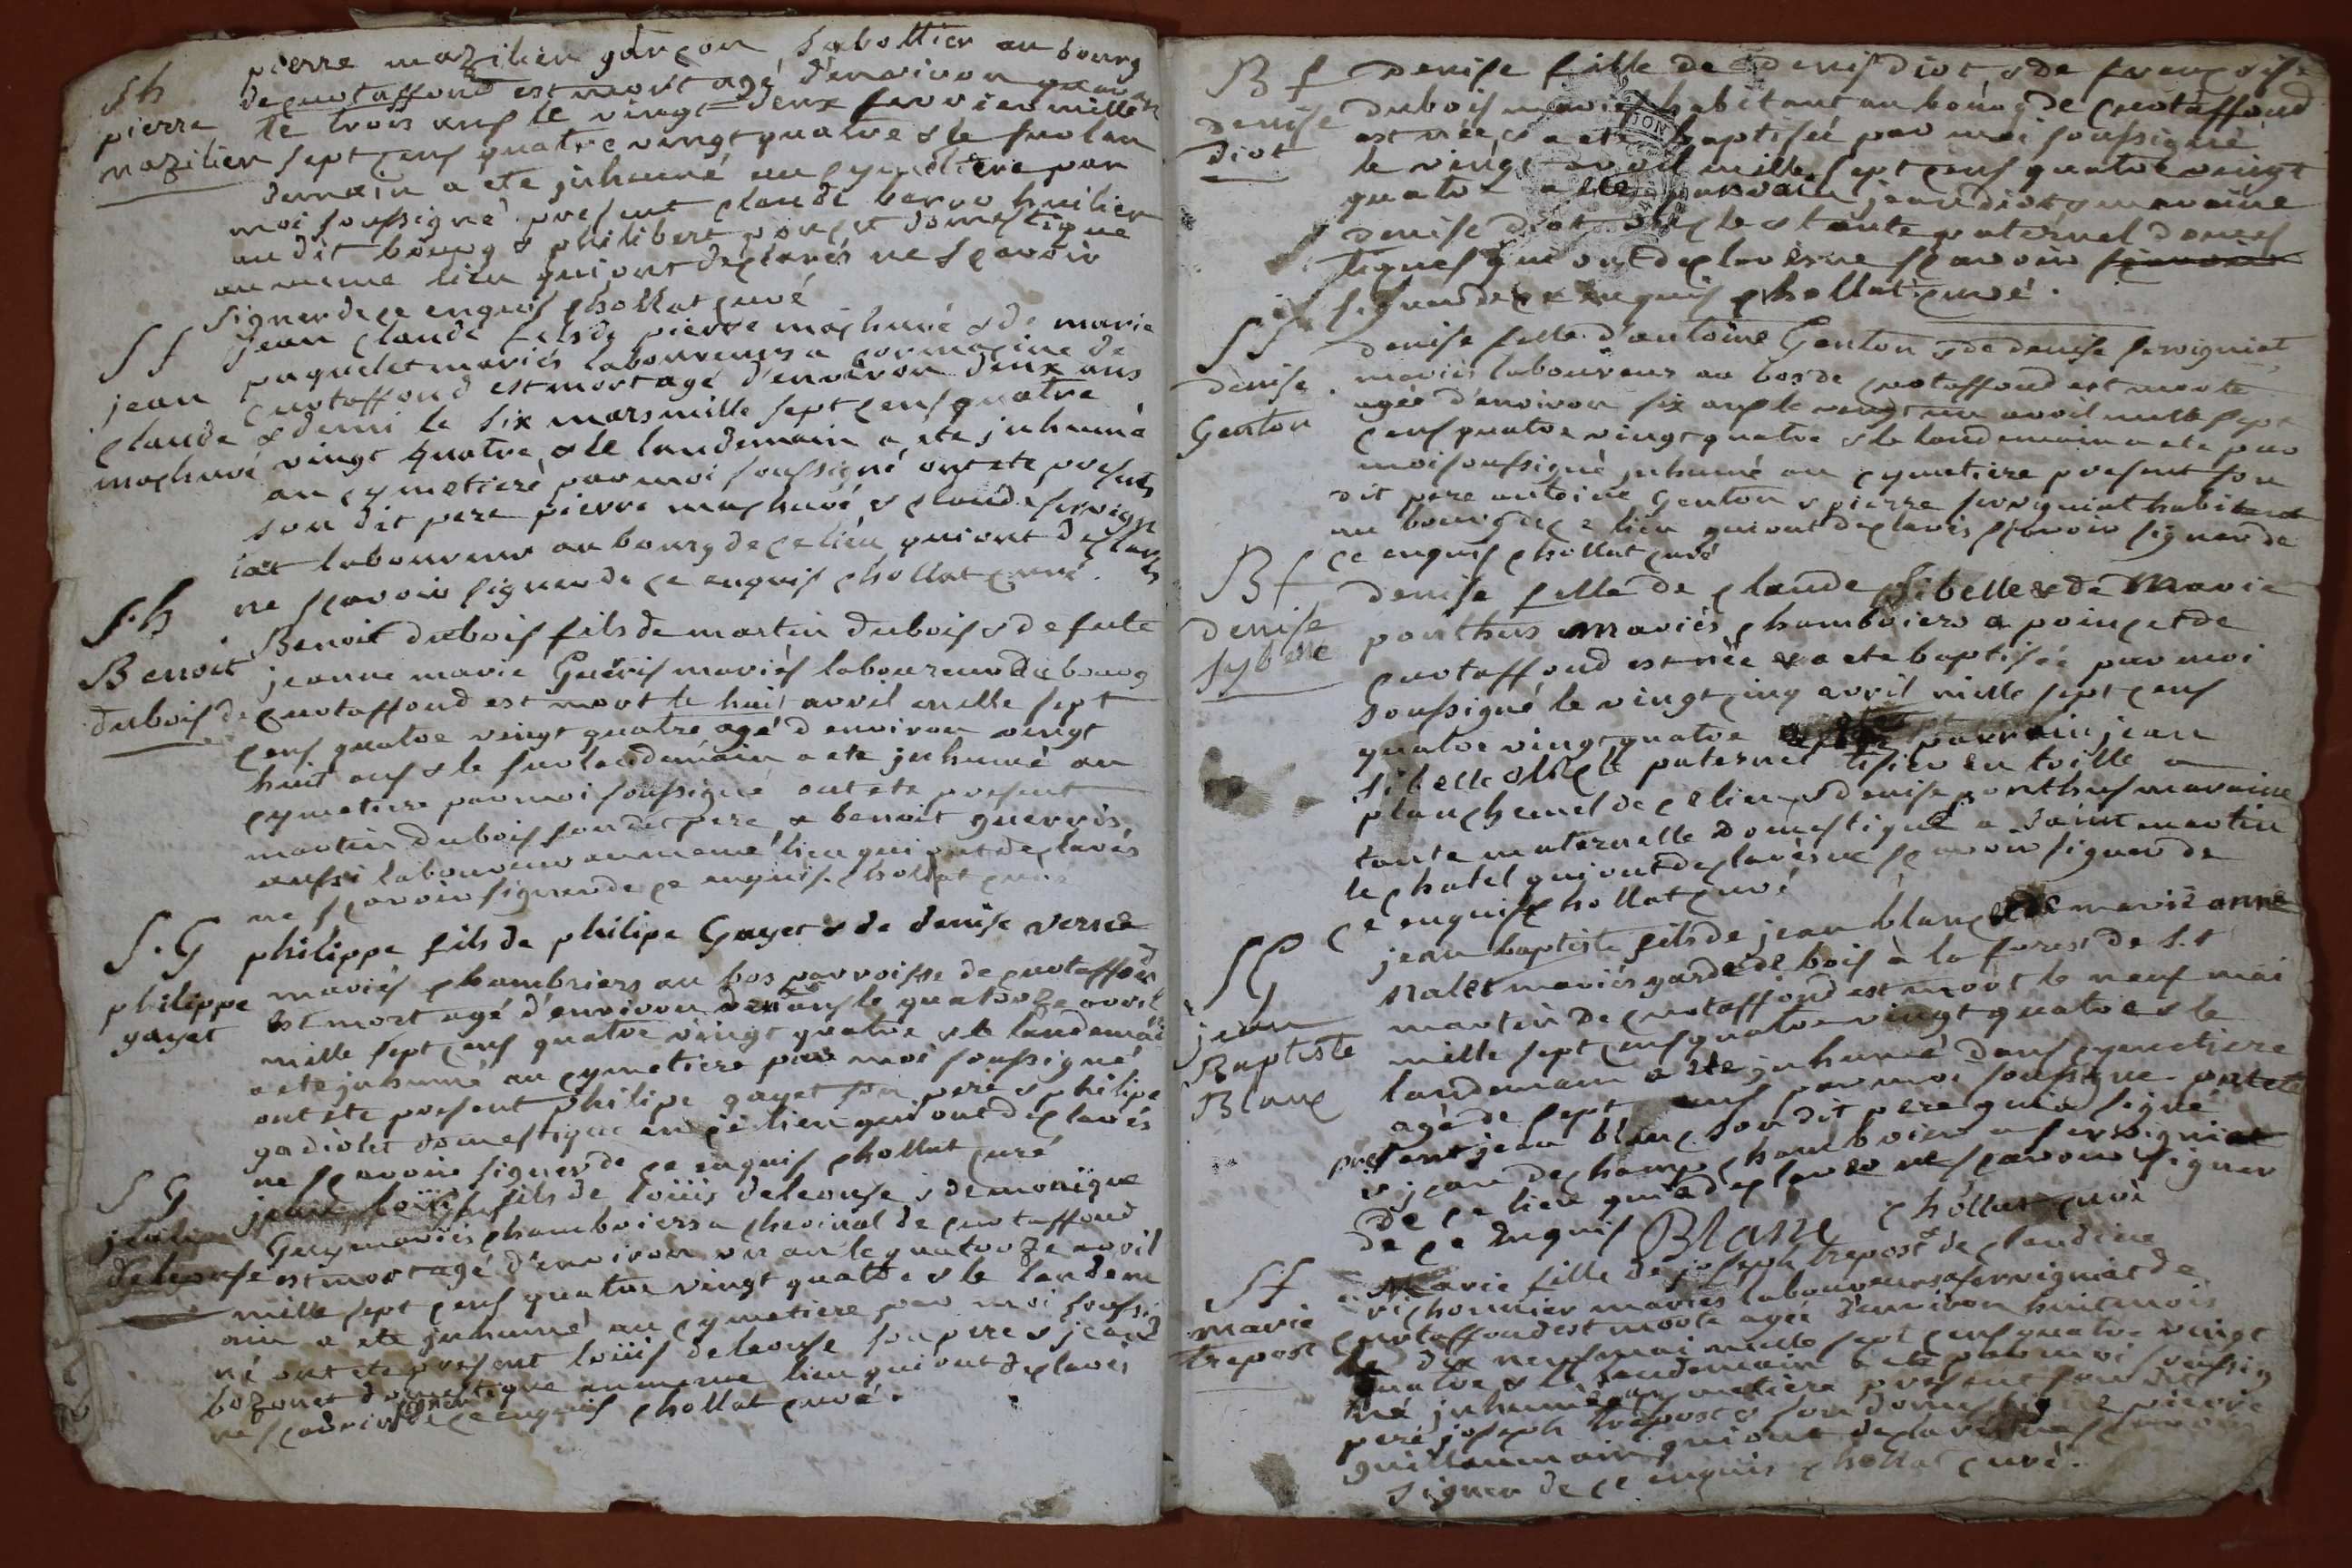 S h
pierre
mazilier
pierre mazilier garçon sabottier au bourg
de curtaffond est mort agé d'environ quaran
te trois ans le vingt deux fevrier mille
sept cens quatre vingt quatre & le surlen
demain a ete juhumé au cymetiere par
moi soussigné present claude huilier
au dit bourg & philibert poncet domestique
au meme lieu qui ont declarés ne scavoir
signer de ce enquis chollat curé
S f
jean
claude
machuré
jean claude fils de pierre machuré & de marie
paquelet mariés laboureurs a cormacine de
curtaffond est mort agé d'environ deux ans
& demi le six mars mille sept cens quatre
vingt quatre & le landemain a ete juhumé
au cymetiere par moi soussigné ont ete presents
son dit pere pierre machuré & claude servign
iat laboureur au bourg de ce lieu qui ont declarés
ne scavoir signer de ce enquis chollat curé.
S. h
Benoit
dubois
Benoit dubois fils de martin dubois & de fute
jeanne marie Gueris mariés laboureur du bourg
de curtaffond est mort le huit avril mille sept
cens quatre vingt quatre agé d environ vingt
huit ans & le surlandemain a ete juhumé au
cymetiere par moi soussigné ont ete present
martin dubois son dit pere & benoit guerris
aussi laboureur au meme lieu qui ont declarés
ne scavoir signer de ce enquis. chollat curé
S. G
philippe
gayet
philippe fils de philipe Gayet & de denise verne
mariés chambriers au bos parroisse de curtaffond
est mort agé d'environ ans le quatorze avril
mille sept cens quatre vingt quatre & le landemai
a ete juhumé au cymetiere par moi soussigné
ont ete present philipe gayet son pere & philipe
gadiolet domestique en ce lieu qui ont declarés
ne scavoir signer de ce enquis chollat curé
S G
deleouse
loüis fils de loüis deleouse & demonique
Guy mariés chambriers a chevinal de curtaffond
est mort agé d'environ un an le quatorze avril
mille sept cens quatre vingt quatre & le landem
ain a ete juhumé au cymetiere par moi soussig
né ont ete present loüis deleouse son pere & jean
bozonet domestique au meme lieu qui ont declarés
ne scavoir signer de ce enquis chollat curé.
B f
denise
diot
Denise fille de denis diot & de françoise
dubois mariés habitant au bourg de curtaffond
est née & a ete baptisée par moi soussigné
le vingt avril mille sept cens quatre vingt
quatre a ete parrain jean diot & maraine
denise diot oncle & tante paternel domes
tiques qui ont declarés ne scavoir
signer de ce enquis chollat curé.
S f
denise
Genton
denise fille d'antoine Genton & de denise servigniat
mariés laboureur au bos de curtaffond est morte
agée d'environ six ans le vingt un avril mille sept
cens quatre vingt quatre & le landemain a ete par
moi soussigné juhumé au cymetiere present son
dit pere antoine Genton & pierre servigniat habitant
au bourg de ce lieu qui ont declarés scavoir signer de
ce enquis chollat curé
B f
denise
sybelle
denise fille de claude sibelle & de Marie
ponthus mariés chambriers a poincet de
curtaffond est née & a ete baptisée par moi
soussigné le vingt cinq avril mille sept cens
quatre vingt quatre parrain jean
sibelle oncle paternel tisier en toille a
planchemel de ce lieu & denise ponthus maraine
tante maternelle domestique a saint martin
le chatel qui ont declarés ne scavoir signer de
ce enquis chollat curé
S P
jean
Baptiste
Blanc
jean baptiste fils de jean blanc & de marie anne
nalet mariés garde de bois à la forest de s.t
martin de curtaffond est mort le neuf mai
mille sept cens quatre vingt quatre & le
landemain a ete juhumé dans cymetiere
agé de sept ans par moi soussigné ont ete
present jean blanc son dit pere qui a signé
& jean dechamp chambrier a servigniat
de ce lieu qui a declaré ne scavoir signer
de ce enquis Blanc chollat curé
S f
marie
trepost
Marie fille de joseph trepost & de claudine
richonnier mariés laboureurs a servigniat de
curtaffond est morte agée d'environ huit mois
le dix neuf mai mille sept cens quatre vingt
quatre & le landemain a ete par moi soussig
né juhumée au cymetiere present son dit
pere joseph trepost & son domestique pierre
guillaumain qui ont declarés ne scavoir
signer de ce enquis chollat curé.